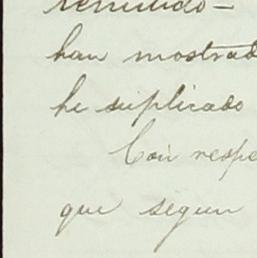 remitido-
han mostrad
he suplicado
Con respe
que segun